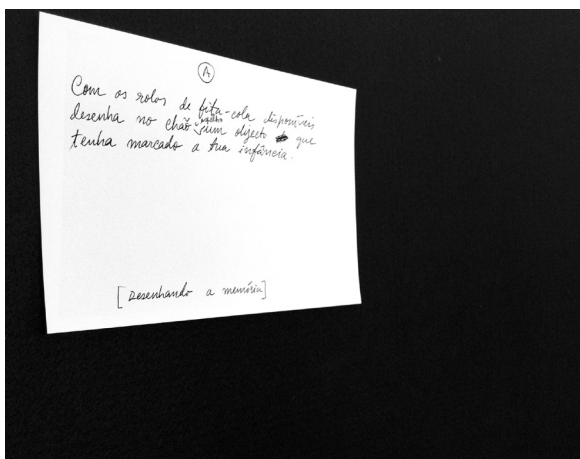 A
Com os rolos de fita-cola disponíveis
desenha no chão um objecto que
tenha marcado a tua infância.
[Desenhando a memória]